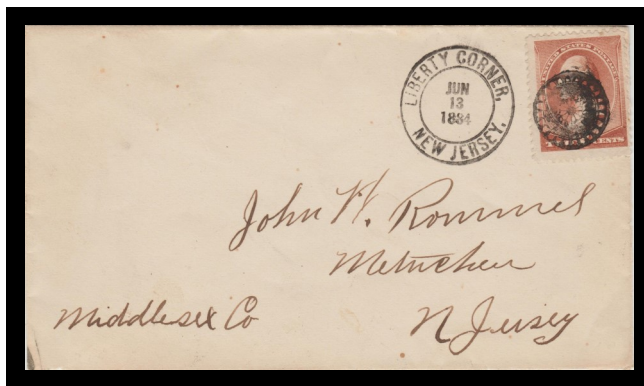 LIBERTY CORNER,
JUN
13
1884
NEW JERSEY.
UNITED STATES POSTAGE
CENTS
John H. Rommel
Metuchen
Middlesex Co
N Jersey